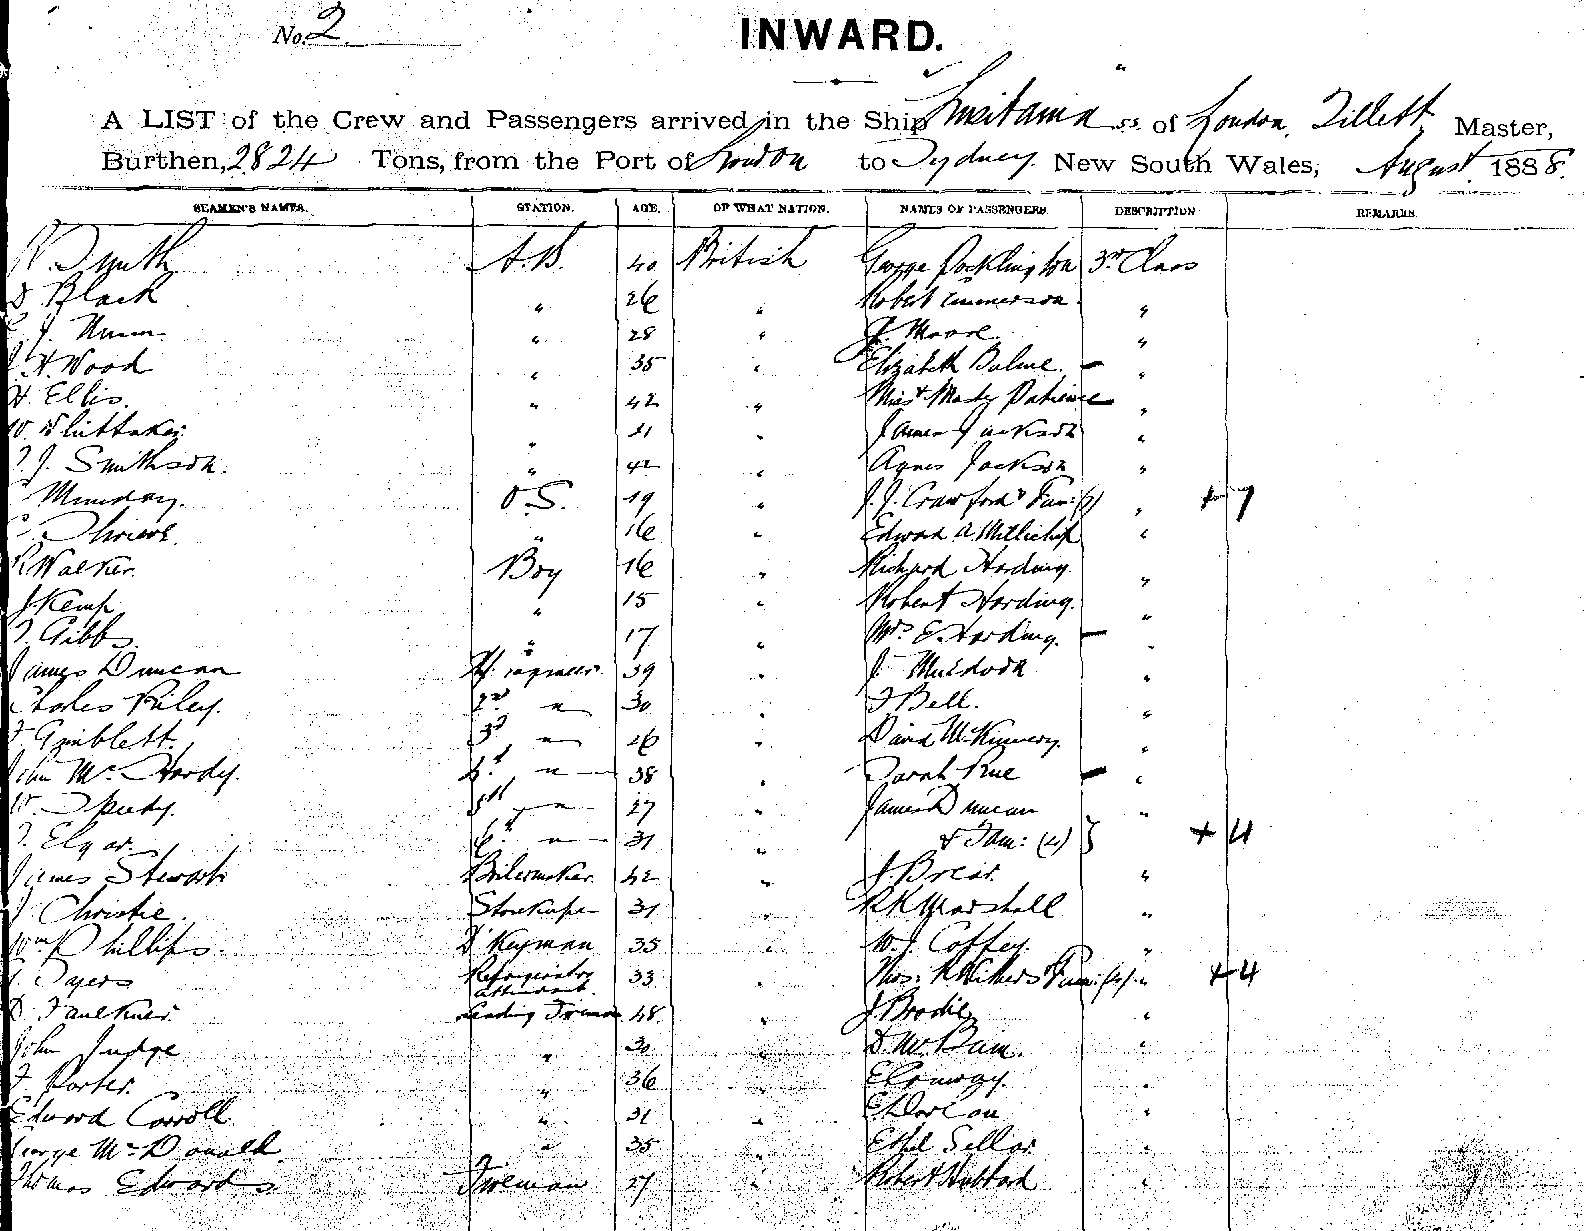 No. 2
INWARD.
A LIST of the Crew and Passengers arrived in the Ship Lusitania s.s. of London, Tillett, Master,
Burthen, 2824 Tons, from the Port of London to Sydney New South Wales, August 1888.
SEAMEN'S NAMES. STATION. AGE. OF WHAT NATION. NAMES OF PASSENGERS. DESCRIPTION REMARKS.
Smith A.B. 40 British George Pocklington 3rd Class
Black " 26 " Robert Emmerson "
J. Nunn " 28 " J. Moore "
H. Wood " 35 " Elizabeth Bulme. — "
H. Ellis. " 42 " Patience "
W. Whittaker " 21 " James Jackson "
J. Smithson. " 42 " Agnes Jackson "
Munday. O.S. 19 " J. J. Crawford & Fam: (7) " + 7
" 16 " Edward A. Millichip "
R Walker. Boy 16 " Richard Harding. "
J Kemp " 15 " Robert Harding. "
Gibbs " 17 " Mrs E. Harding. — "
James Duncan 39 " J. Murdoch "
Charles Riley. 2nd " 30 " J Bell. "
Gimblett. 3rd " 26 " David "
John Mc Hardy. 4th " 38 " Sarah Rue — "
W. 5th " 27 " James Duncan "
Elgar. 6th " 31 " & Fam: (4) } + 4
James Stewart Boilermaker 42 " J. Brear. "
J Christie. Storekeeper 31 " R K Marshall "
Wm Phillips D'Keyman 35 " W. J. Coffey. "
Sayers Refrigerator attendant. 33 " Thos. & Fam: (4). " + 4
D. Faulkner. Leading Fireman 48 " J Brodie "
John Judge " 30 " D. "
F. Porter. " 36 " E Conway. "
Edward Carroll " 31 " "
George Mc Donald. " 35 " Ethel Sellar "
Thomas Edwards Fireman 27 " Robert Hubbard "